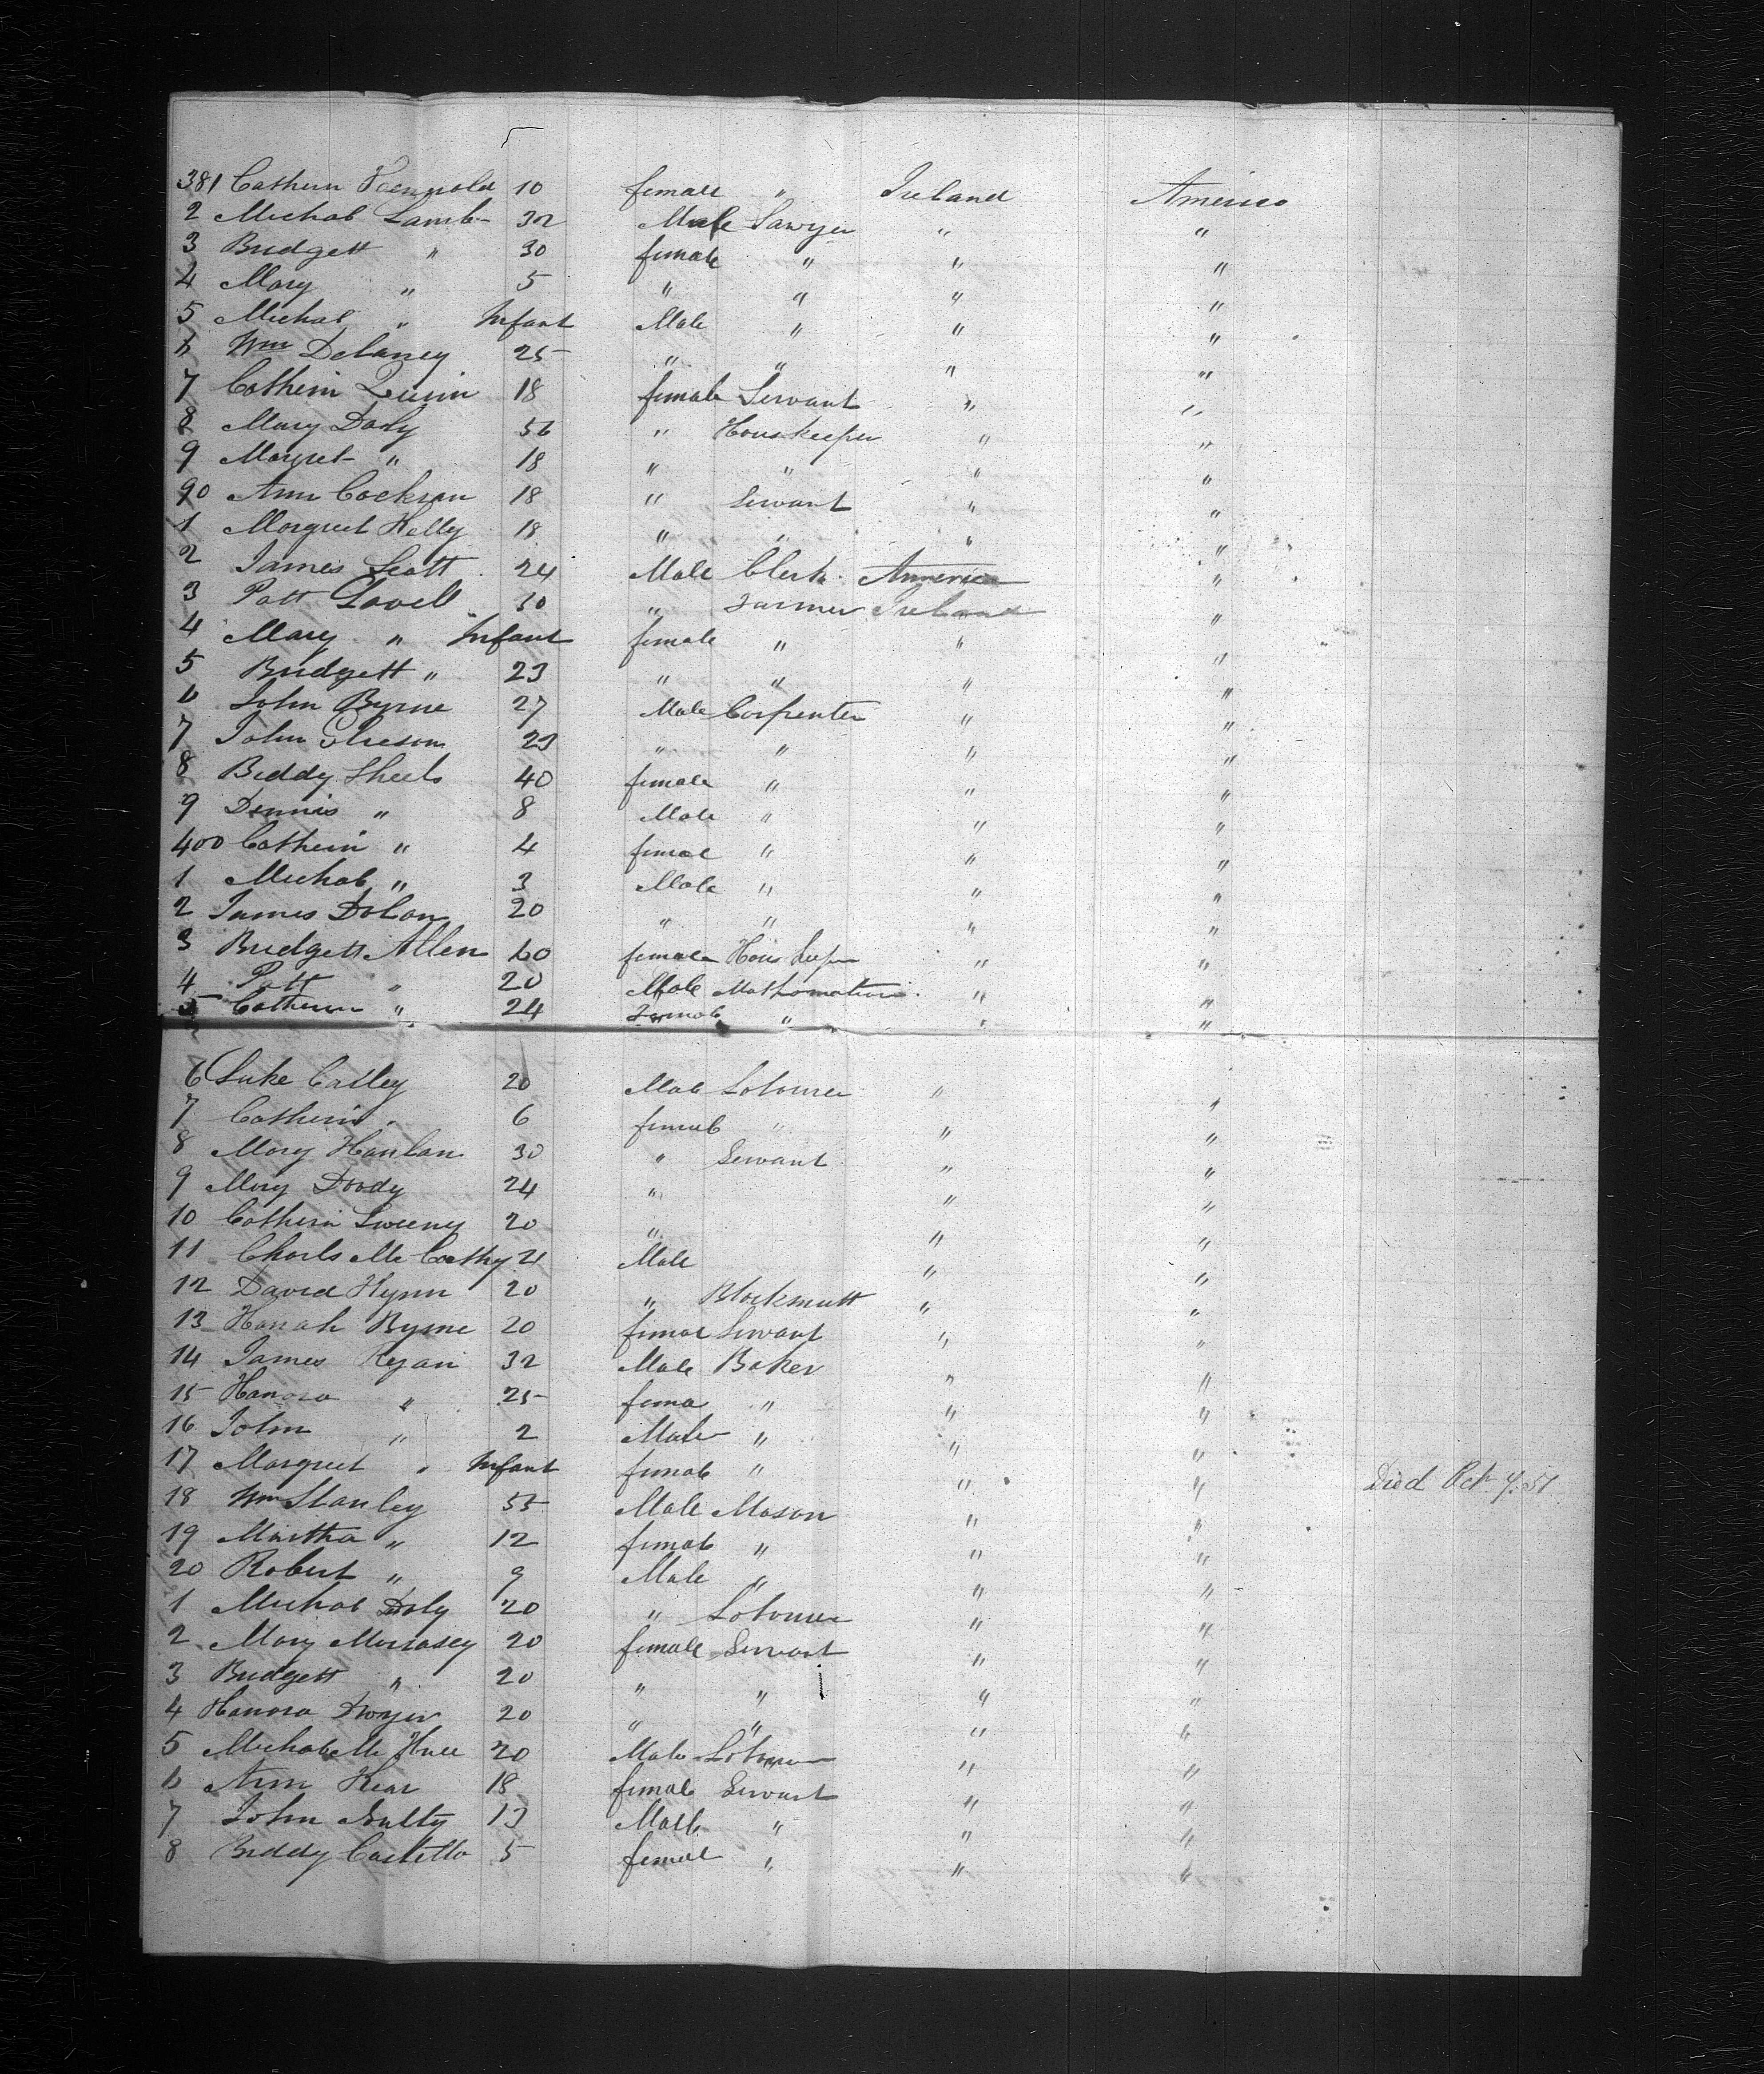 5
381 Cathern 10 female " Ireland America
2 Michal Lamb 32 Male Sawyer " "
3 Bridgett " 30 female " " "
4 Mary " 5 " " " "
5 Michal " Infant Male " " "
6 Wm Delaney 25 " " " "
7 Catherin Quinn 18 female Servant " "
8 Mary Daly 56 " Houskeeper " "
9 Margret " 18 " " " "
90 Ann Cockran 18 " Servant " "
1 Margret Kelly 18 " " " "
2 James Scott 24 Male Clerk America "
3 Patt Lavell 30 " Farmer Ireland "
4 Mary " Infant female " " "
5 Bridgett " 23 " " " "
6 John Byrne 27 Male Carpenter " "
7 John 23 " " " "
8 Biddy Sheels 40 female " " "
9 Dennis " 8 Male " " "
400 Catherin " 4 female " " "
1 Michal " 3 Male " " "
2 James Dolan 20 " " " "
3 Bridgett Allen 60 female Hous keeper " "
4 Patt " 20 Male " "
5 Catherin " 24 Female " " "
6 Luke Calley 20 Male Labourer " "
7 Catherin " 6 female " " "
8 Mary Hanlan 30 " Servant " "
9 Mary Doody 24 " " "
10 Catherin Sweeny 20 " " "
11 Charls Mc Cathy 21 Male " "
12 David Flynn 20 " Blacksmitt " "
13 Hanah Byrne 20 female Servant " "
14 James Regan 32 Male Baker " "
15 Hanora " 25 female " " "
16 John " 2 Male " " "
17 Margret " Infant female " " " Died Oct 7. 51
18 Wm Stanley 55 Male Mason " "
19 Martha " 12 female " " "
20 Robert " 9 Male " " "
1 Michal Daly 20 " Labourer " "
2 Mary Morrasey 20 female Servant " "
3 Bridgett " 20 " " " "
4 Hanora Dwyer 20 " " " "
5 Michal Mc 20 Male Labourer " "
6 Ann Kear 18 female Servant " "
7 John Nulty 13 Male " " "
8 Biddy Castello 5 female " " "